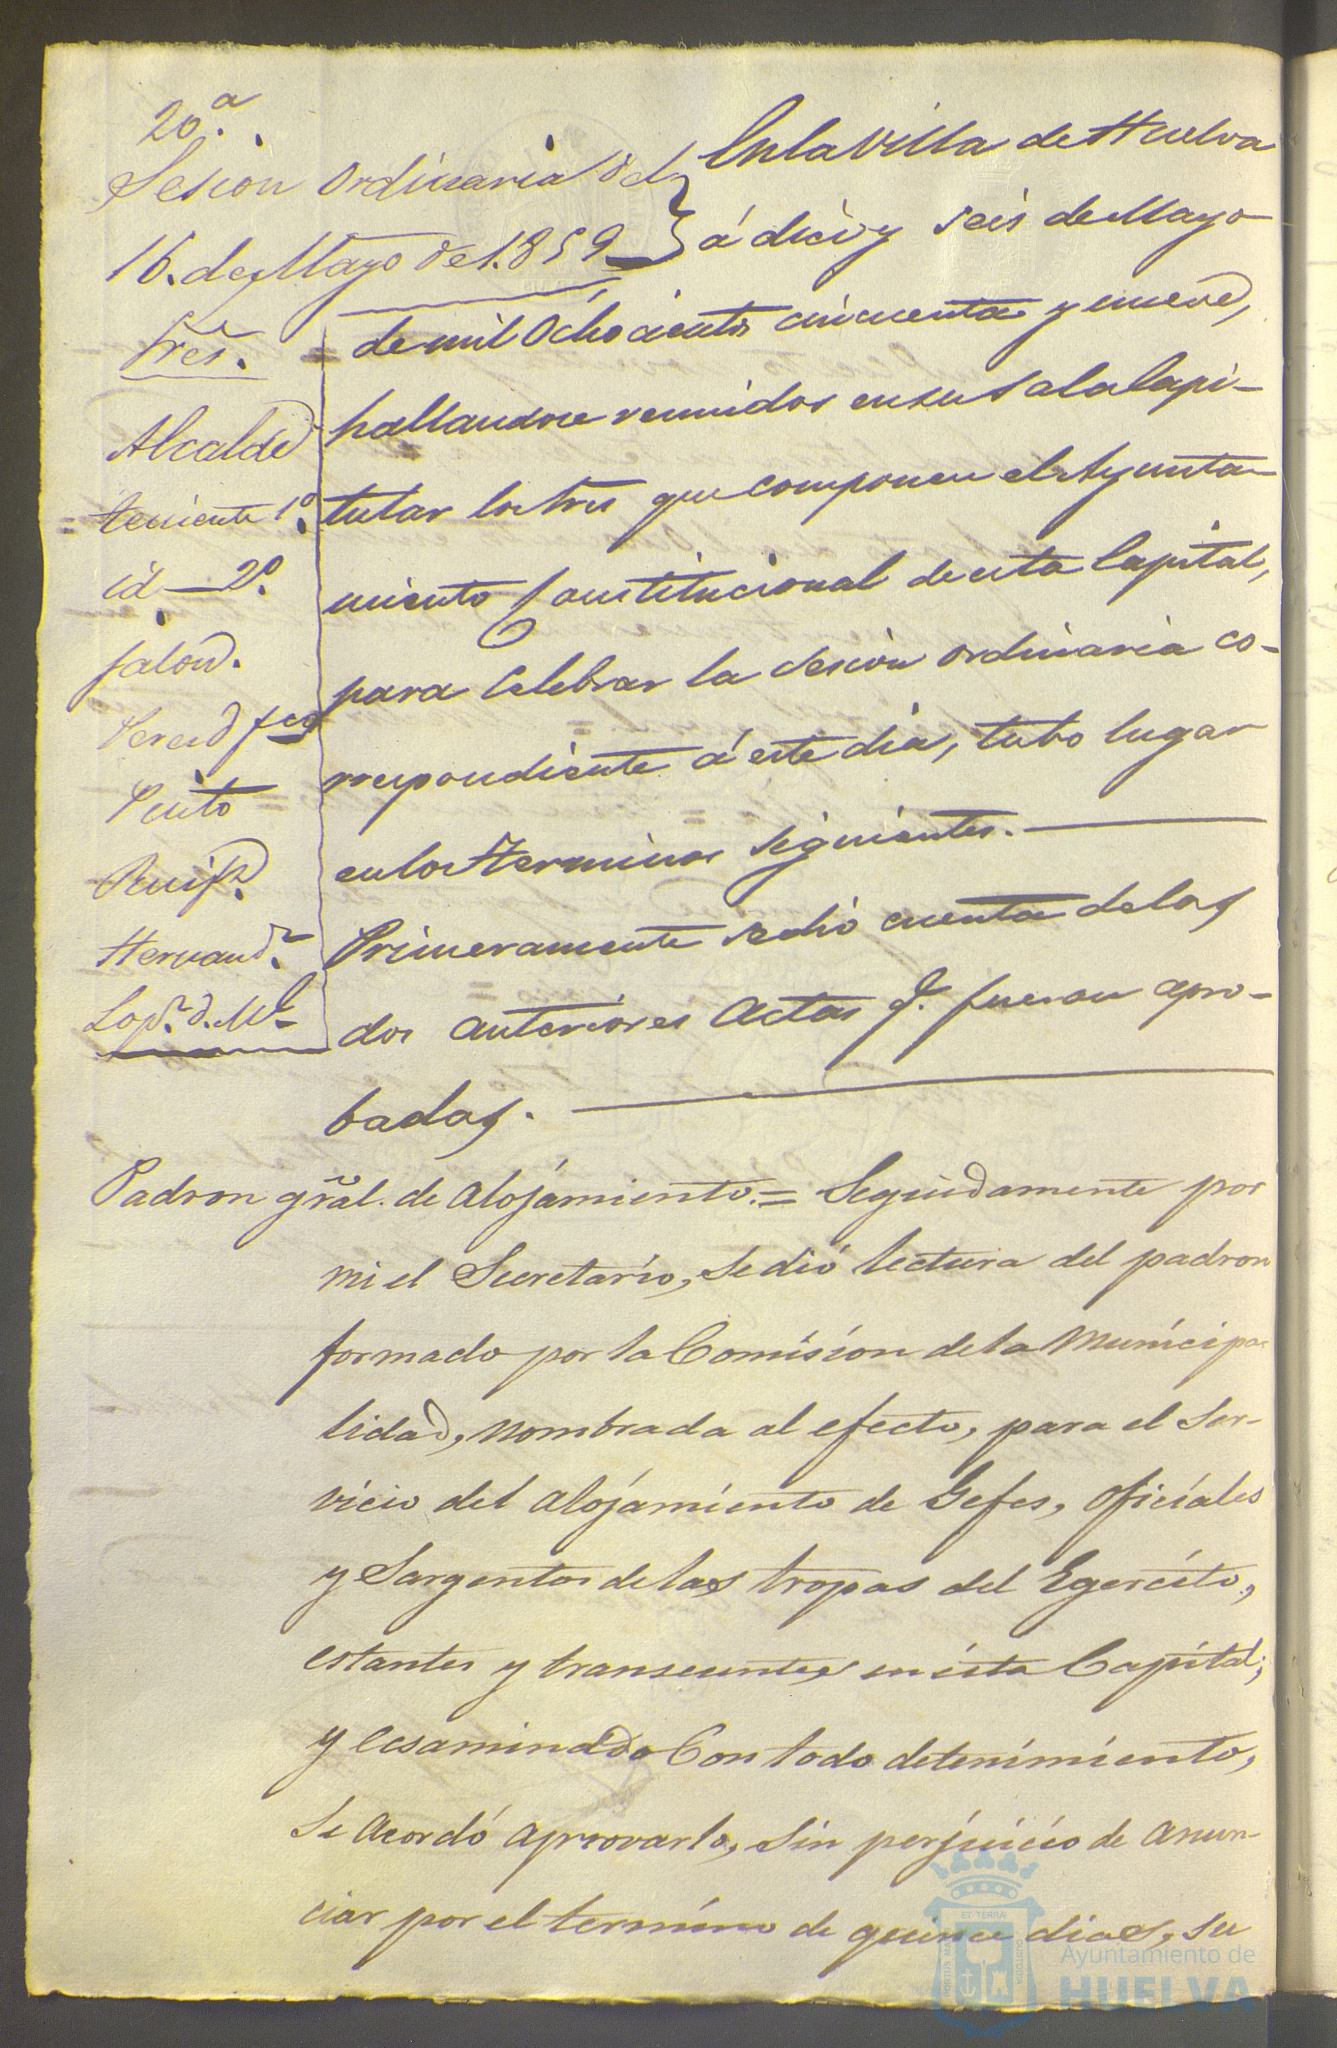 20.ª
Sesion ordinaria del
16. de Mayo de 1.859
Sres.
Alcalde
teniente 1º.
id — 2º.
Jalon.
Perez Fco
Pinto
Ruiz
Hernandz.
Lopz. d. Ml
En la Villa de Huelva
á diez y seis de Mayo
de mil Ochocientos cincuenta y nueve,
hallandose reunidos en su Sala Capi-
tular los Sres que componen el Ayunta-
miento Constitucional de esta Capital,
para Celebrar la sesion ordinaria co-
rrespondiente á este dia, tubo lugar
en los terminos siguientes.
Primeramente se dió cuenta de las
dos anteriores Actas q. fueron apro-
badas.
Padron gral. de Alojamiento. = Seguidamente por
mi el Secretario, se dió lectura del padron
formado por la Comision de la Municipa-
lidad, nombrada al efecto, para el ser-
vicio del alojamiento de Gefes, oficiales
y Sargentos de las tropas del Egercito,
estantes y transeuntes en esta Capital;
y ecsaminado Con todo detenimiento,
se acordó aprovarlo, sin perjuicio de anun-
ciar por el termino de quince dias, su
Ayuntamiento de
HUELVA